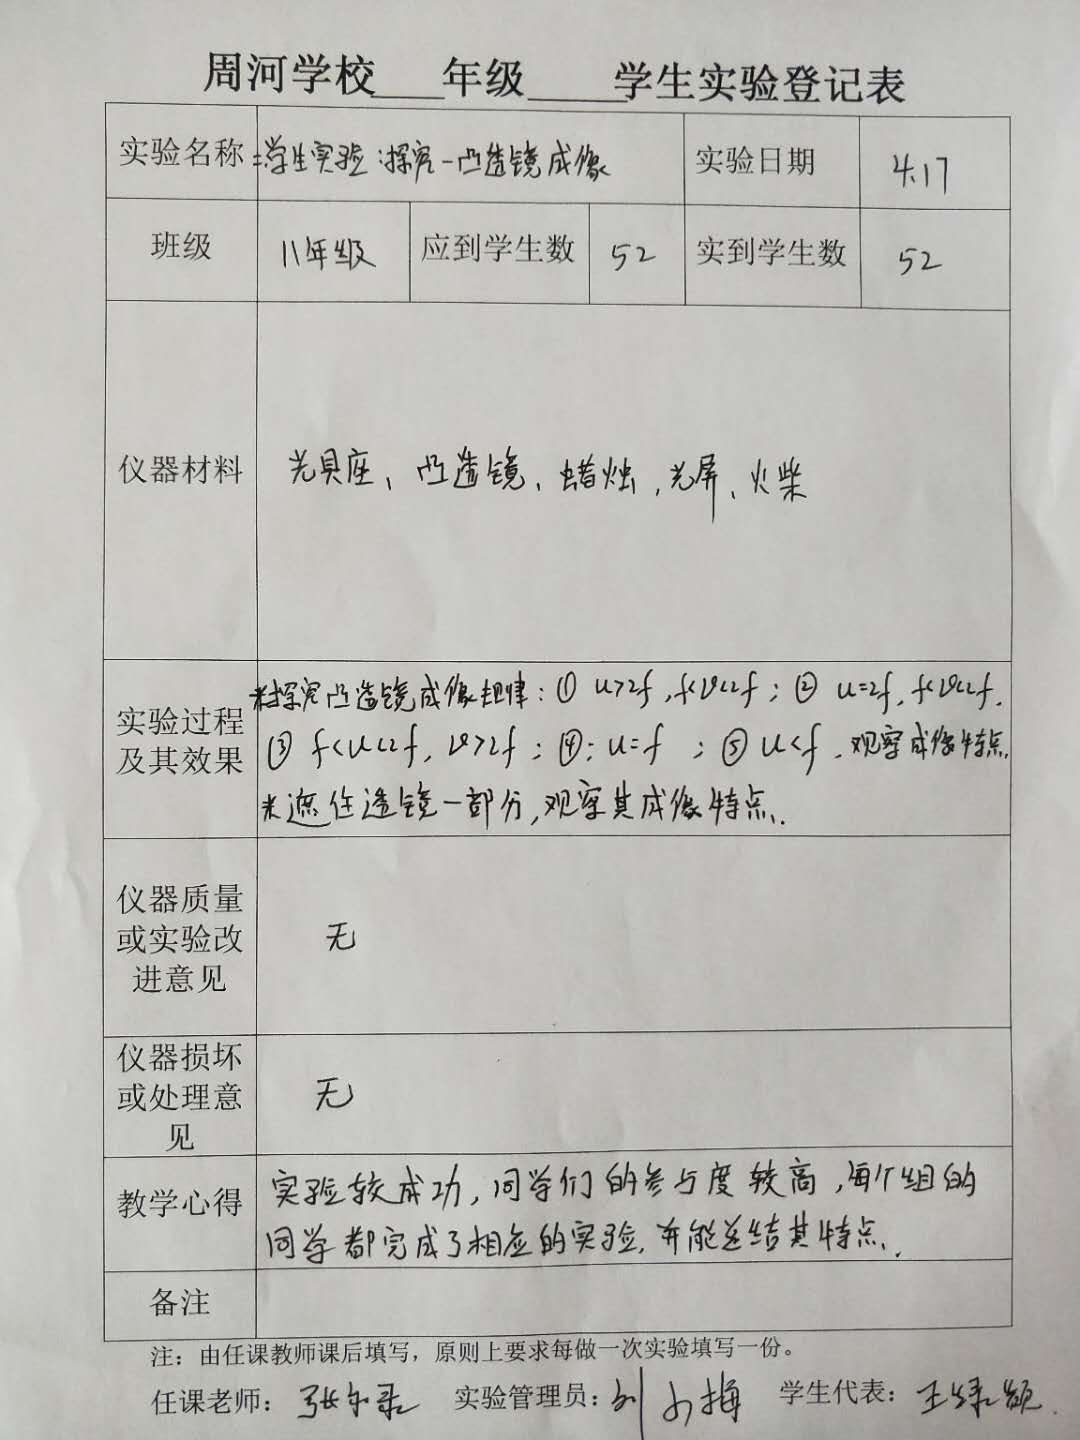 周河学校___年级____学生实验登记表
实验名称 学生实验:探究-凸透镜成像 实验日期 4.17
班级 八年级 应到学生数 52 实到学生数 52
仪器材料 光具座、凸透镜、蜡烛、光屏、火柴
*探究凸透镜成像规律:① u>2f,f<v<2f;② u=2f,f<v<2f.
实验过程
及其效果
③ f<u<2f,v>2f;④:u=f ;⑤ u<f.观察成像特点.
*遮住透镜一部分,观察其成像特点.
仪器质量
或实验改
进意见
无
仪器损坏
或处理意
见
无
教学心得
实验较成功,同学们的参与度较高,每个组的
同学都完成了相应的实验,并能总结其特点.
备注
注:由任课教师课后填写,原则上要求每做一次实验填写一份。
任课老师: 实验管理员:刘小梅 学生代表: